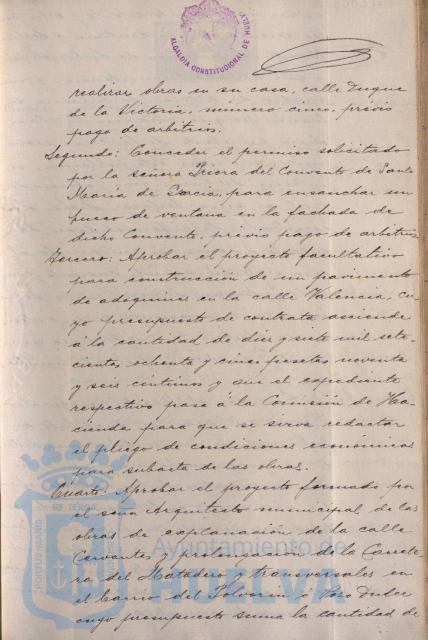 ALCALDIA CONSTITUCIONAL DE HUELVA
realizar obras en su casa, calle Duque
de la Victoria, número cinco, previo
pago de arbitrios.
Segundo: Conceder el permiso solicitado
por la señora Priora del Convento de Santa
María de Gracia, para ensanchar un
hueco de ventana en la fachada de
dicho Convento, previo pago de arbitrios
Tercero: Aprobar el proyecto facultativo
para construcción de un pavimento
de adoquines en la calle Valencia, cu-
yo presupuesto de contrata asciende
á la cantidad de diez y siete mil sete-
cientas ochenta y cinco pesetas noventa
y seis céntimos y que el expediente
respectivo pase á la Comisión de Ha-
cienda para que se sirva redactar
el pliego de condiciones económicas
para subasta de las obras.
Cuarto: Aprobar el proyecto formado por
el señor Arquitecto municipal de las
obras de explanación de la calle
Cervantes y prolongación de la Carrete-
ra del Matadero y transversales en
el barrio del Polvorín ó Pozo Dulce
cuyo presupuesto suma la cantidad de
PORTUS MARIS
Ayuntamiento de
HUELVA